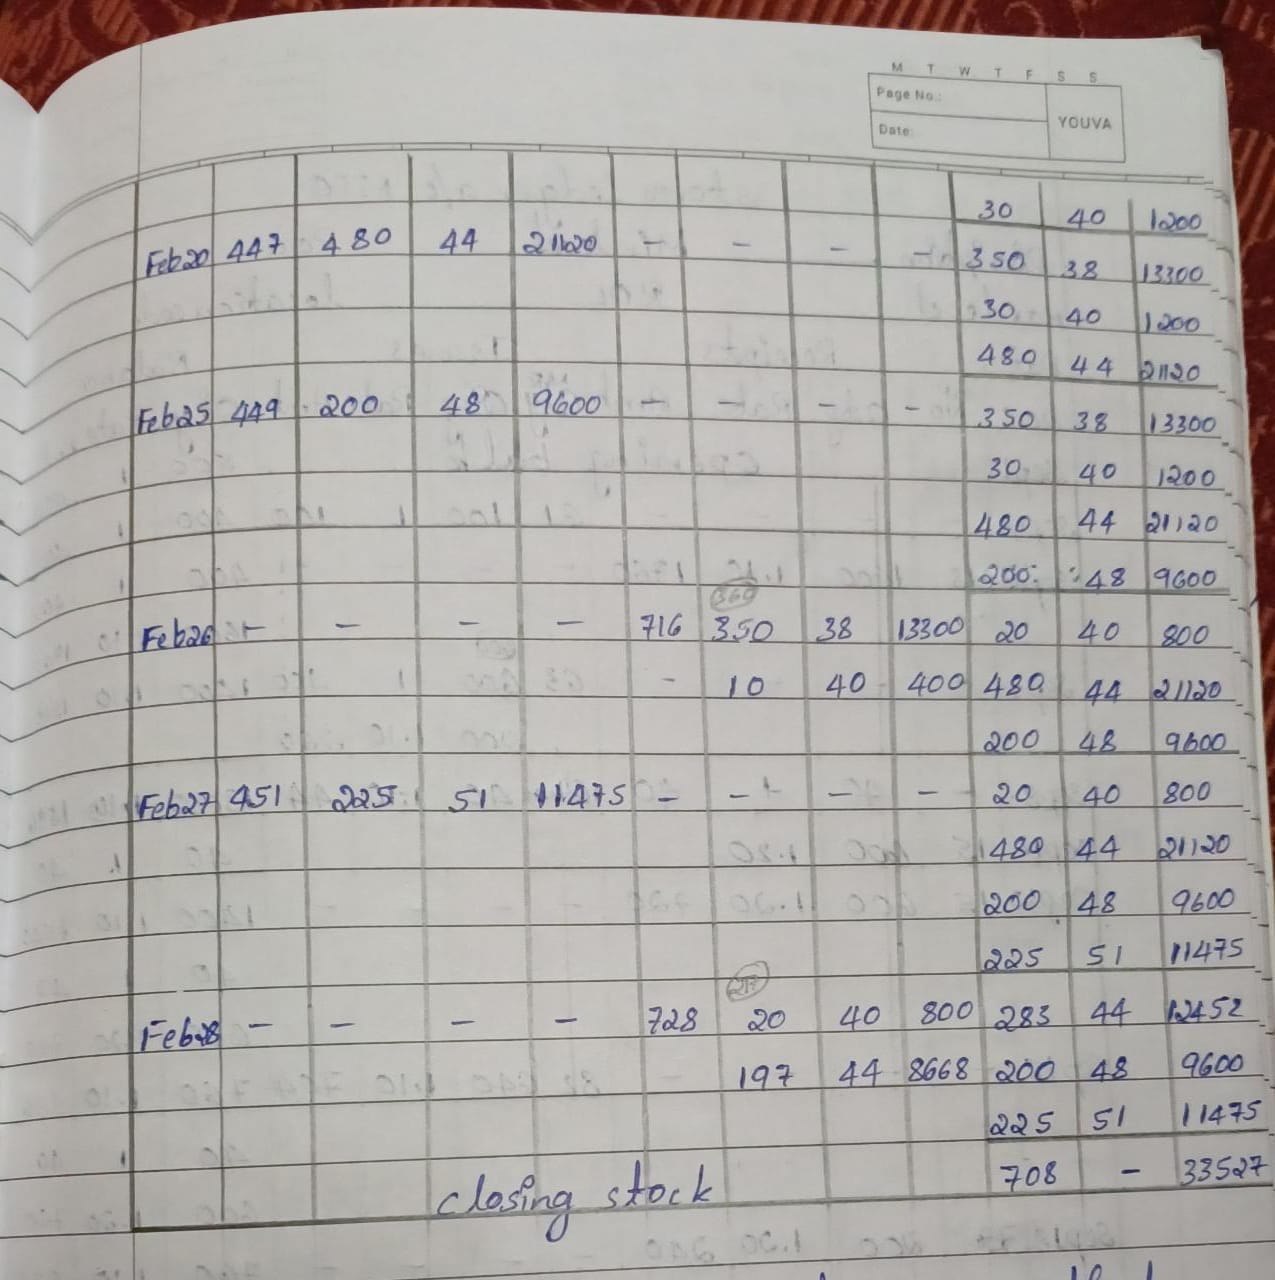 M T W T F S S
Page No.:
YOUVA
Date:
30 40 1200
Feb20 447 480 44 21120 - - - - 350 38 13300
30 40 1200
480 44 21120
Feb25 449 200 48 9600 - - - - 350 38 13300
30 40 1200
480 44 21120
200 48 9600
360
Feb26 - - - - 716 350 38 13300 20 40 800
- 10 40 400 480 44 21120
200 48 9600
Feb27 451 225 51 11475 - - - - 20 40 800
480 44 21120
200 48 9600
225 51 11475
217
Feb28 - - - - 728 20 40 800 283 44 12452
197 44 8668 200 48 9600
225 51 11475
closing stock 708 - 33527